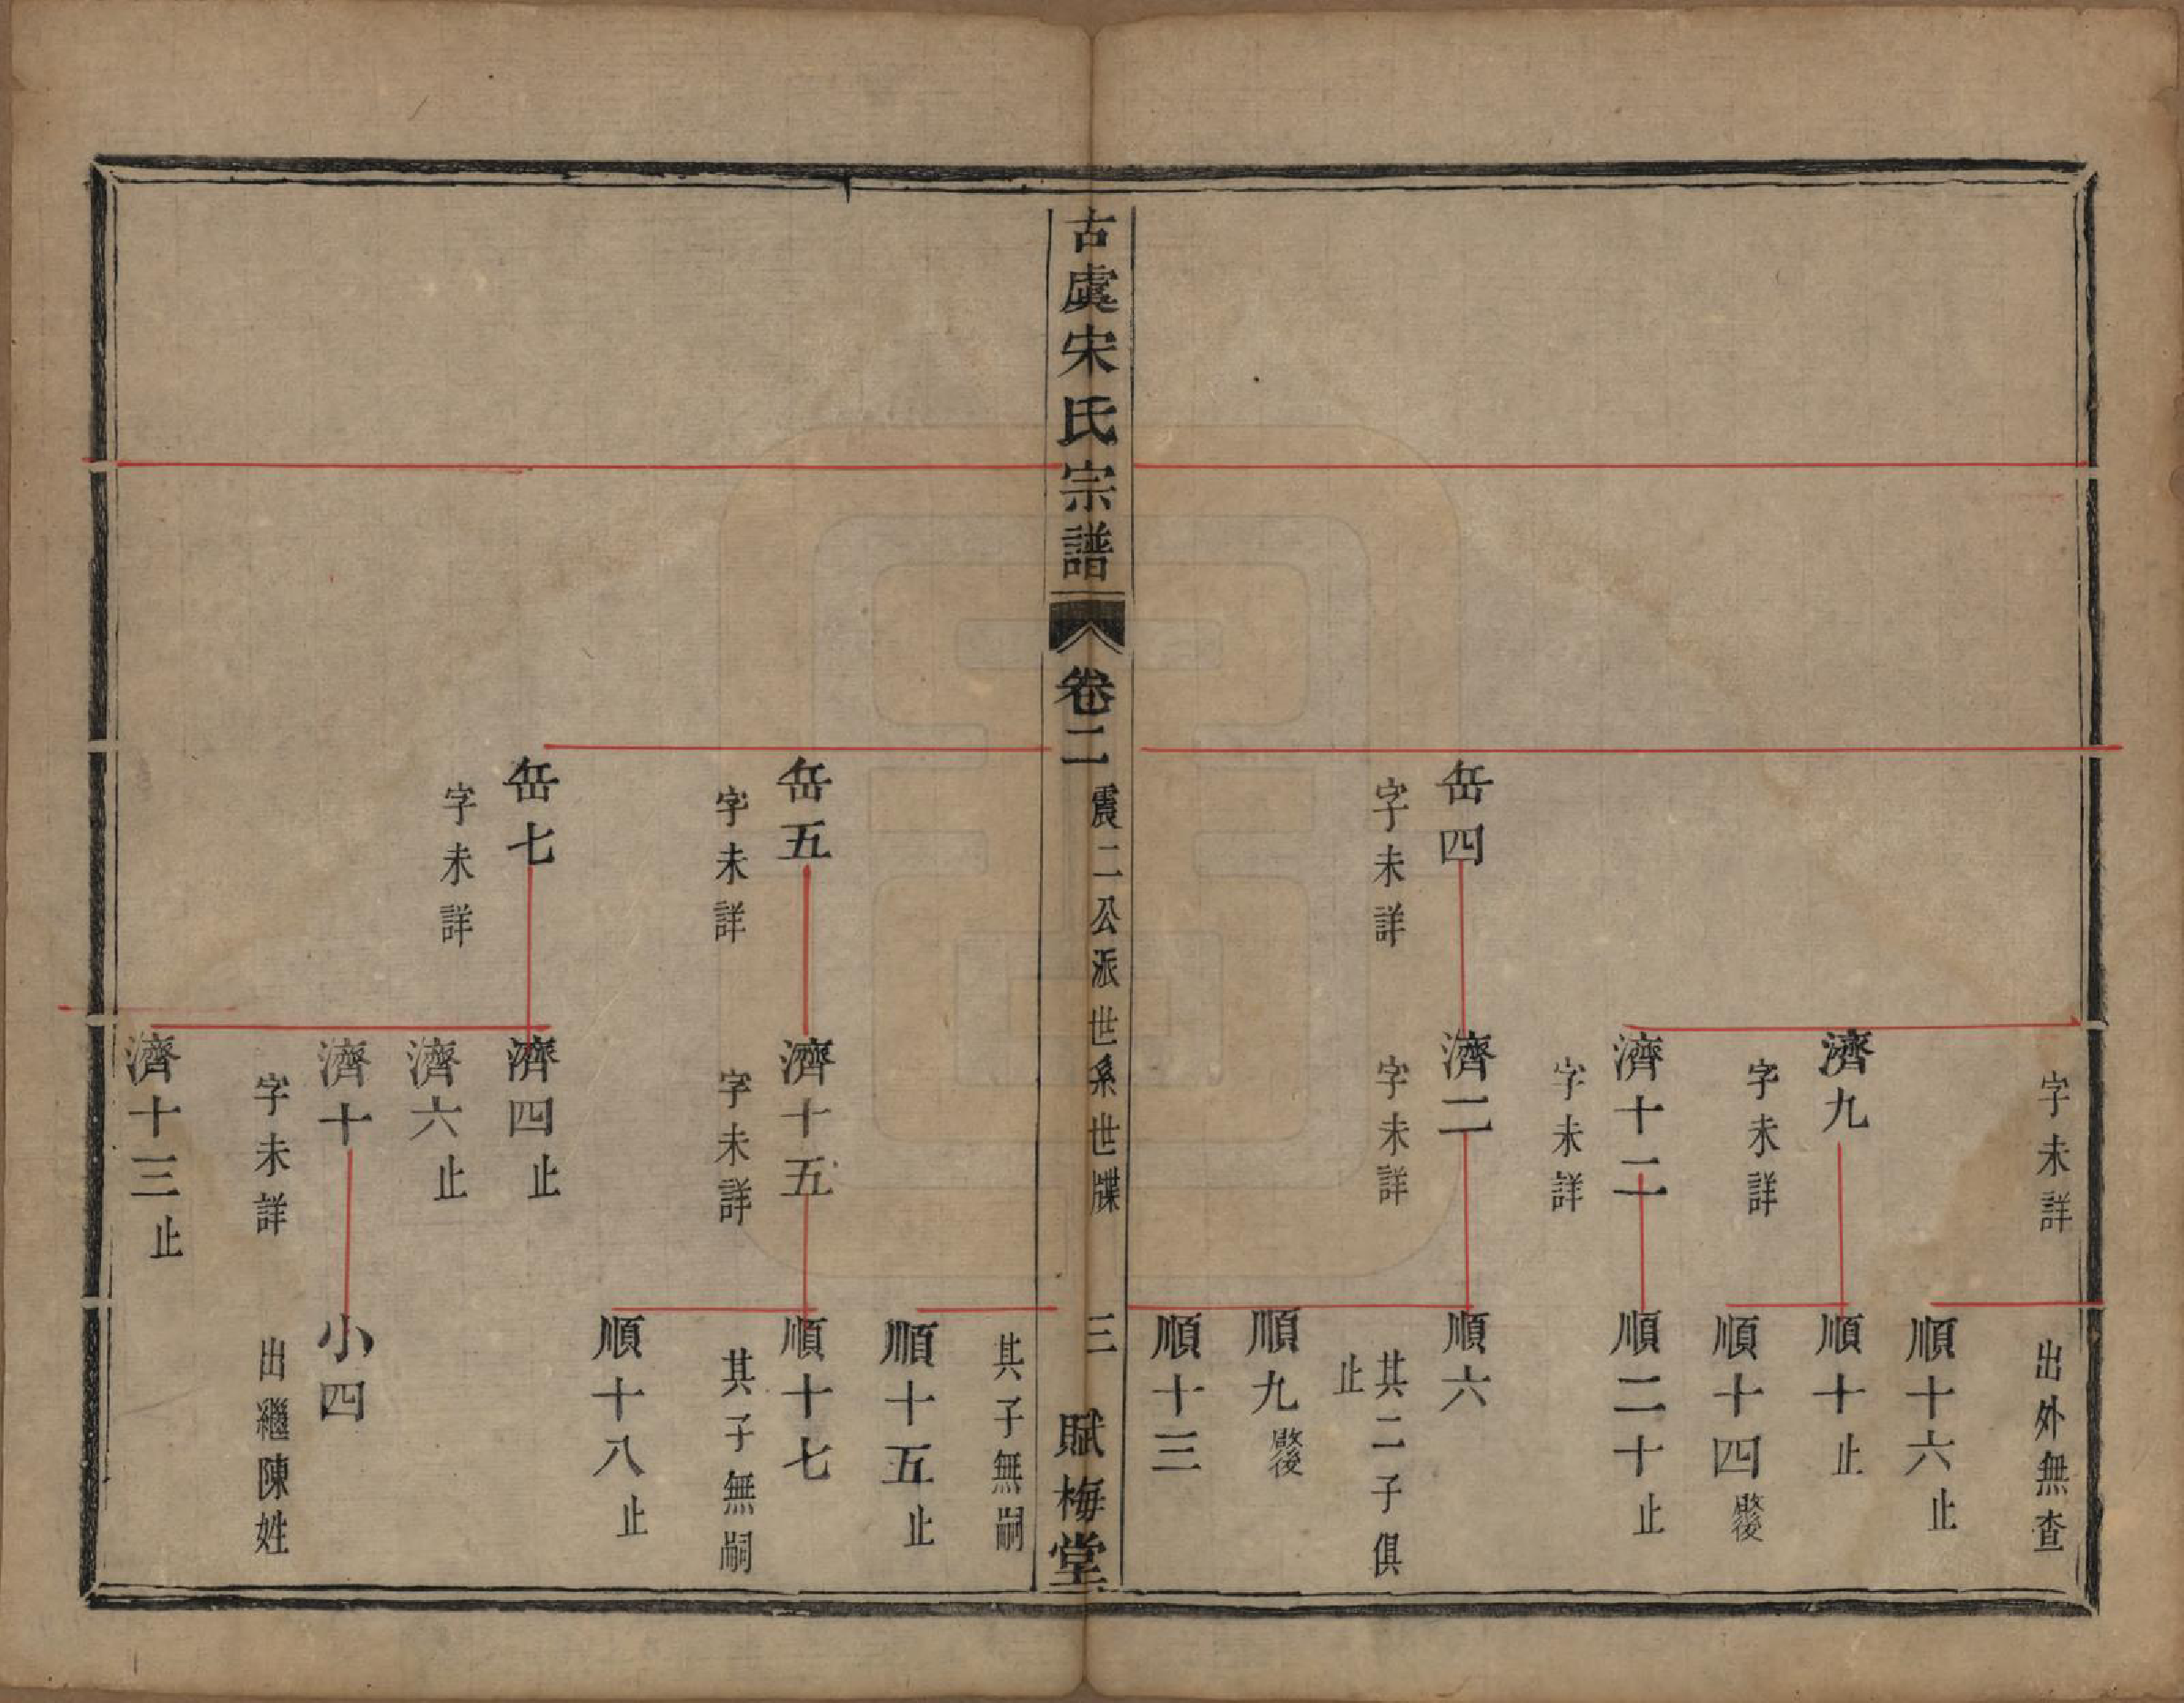 字未詳
出外無查
順十六止
濟九
字未詳
順十止
順十四
濟十二
字未詳
順二十止
岳四
字未詳
濟二
字未詳
順六
其二子俱
止
順九
順十三
古虞宋氏宗譜
卷二
震二公派世系世牒
三
賦梅堂
其子無嗣
順十五止
岳五
字未詳
濟十五
字未詳
順十七
其子無嗣
順十八止
岳七
字未詳
濟四止
濟六止
濟十
字未詳
小四
出繼陳姓
濟十三止